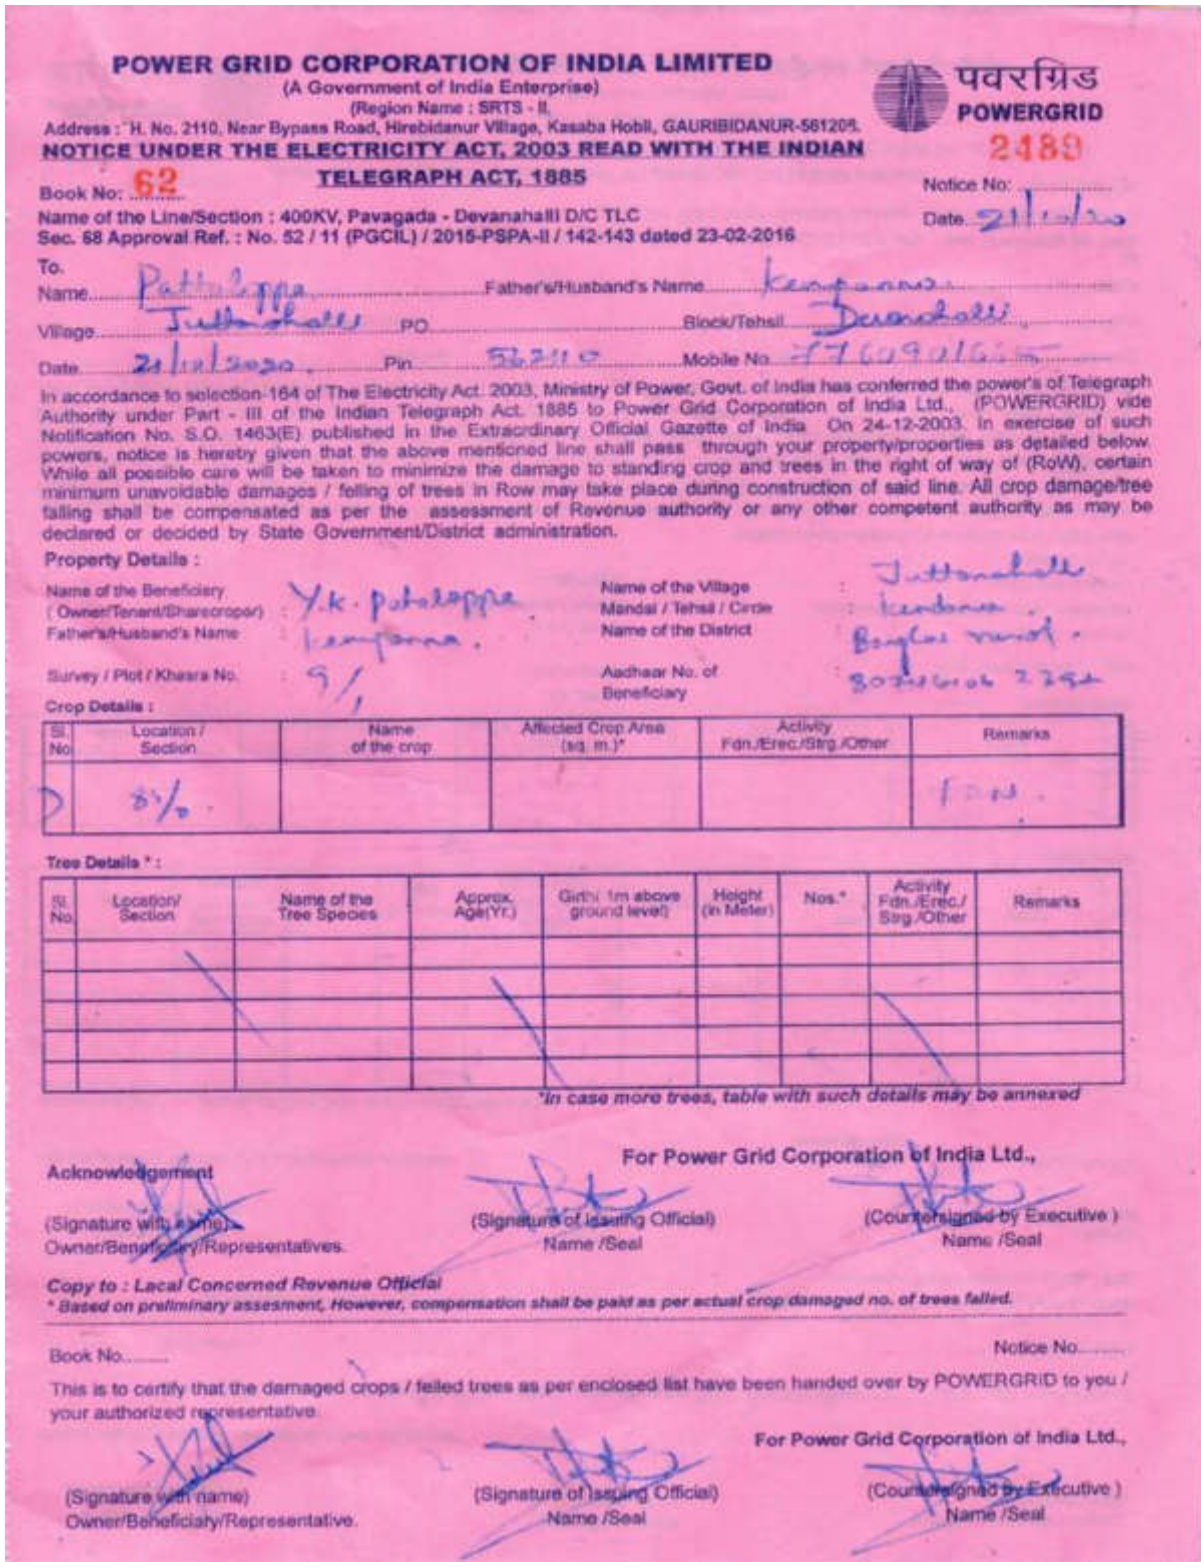 POWER GRID CORPORATION OF INDIA LIMITED
(A Government of India Enterprise)
(Region Name : SRTS - II,
पवरग्रिड
POWERGRID
Address : H. No. 2110, Near Bypass Road, Hirebidanur Village, Kasaba Hobli, GAURIBIDANUR-561208.
NOTICE UNDER THE ELECTRICITY ACT, 2003 READ WITH THE INDIAN
TELEGRAPH ACT, 1885
2489
Book No: 62
Notice No:
Name of the Line/Section : 400KV, Pavagada - Devanahalli D/C TLC
Date 21/10/20
Sec. 68 Approval Ref. : No. 52 / 11 (PGCIL) / 2015-PSPA-II / 142-143 dated 23-02-2016
To.
Name Father's/Husband's Name Kempanna
Village PO Block/Tehsil
Date 21/10/2020 Pin 562110 Mobile No
In accordance to selection-164 of The Electricity Act. 2003, Ministry of Power, Govt. of India has conferred the power's of Telegraph
Authority under Part - III of the Indian Telegraph Act. 1885 to Power Grid Corporation of India Ltd., (POWERGRID) vide
Notification No. S.O. 1463(E) published in the Extraordinary Official Gazette of India On 24-12-2003. In exercise of such
powers, notice is hereby given that the above mentioned line shall pass through your property/properties as detailed below.
While all possible care will be taken to minimize the damage to standing crop and trees in the right of way of (RoW), certain
minimum unavoidable damages / felling of trees in Row may take place during construction of said line. All crop damage/tree
falling shall be compensated as per the assessment of Revenue authority or any other competent authority as may be
declared or decided by State Government/District administration.
Property Details :
Name of the Beneficiary
(Owner/Tenant/Sharecroper) : Y.K. Patalappa
Father's/Husband's Name : Kempanna.
Name of the Village :
Mandal / Tehsil / Circle :
Name of the District :
Survey / Plot / Khasra No. : 9/1
Aadhaar No. of
Beneficiary
Crop Details :
Sl. No Location / Section Name of the crop Affected Crop Area (sq. m.)* Activity Fdn./Erec./Strg./Other Remarks
Tree Details * :
Sl. No. Location/ Section Name of the Tree Species Approx. Age(Yr.) Girth( 1m above ground level) Height (in Meter) Nos.* Activity Fdn./Erec./ Strg./Other Remarks
*In case more trees, table with such details may be annexed
For Power Grid Corporation of India Ltd.,
Acknowledgement
(Signature with name) (Signature of Issuing Official) (Countersigned by Executive )
Owner/Beneficiary/Representatives. Name /Seal Name /Seal
Copy to : Lacal Concerned Revenue Official
* Based on preliminary assesment, However, compensation shall be paid as per actual crop damaged no. of trees failed.
Book No......... Notice No.........
This is to certify that the damaged crops / felled trees as per enclosed list have been handed over by POWERGRID to you /
your authorized representative.
For Power Grid Corporation of India Ltd.,
(Signature with name) (Signature of Issuing Official) (Countersigned by Executive )
Owner/Beneficialy/Representative. Name /Seal Name /Seal